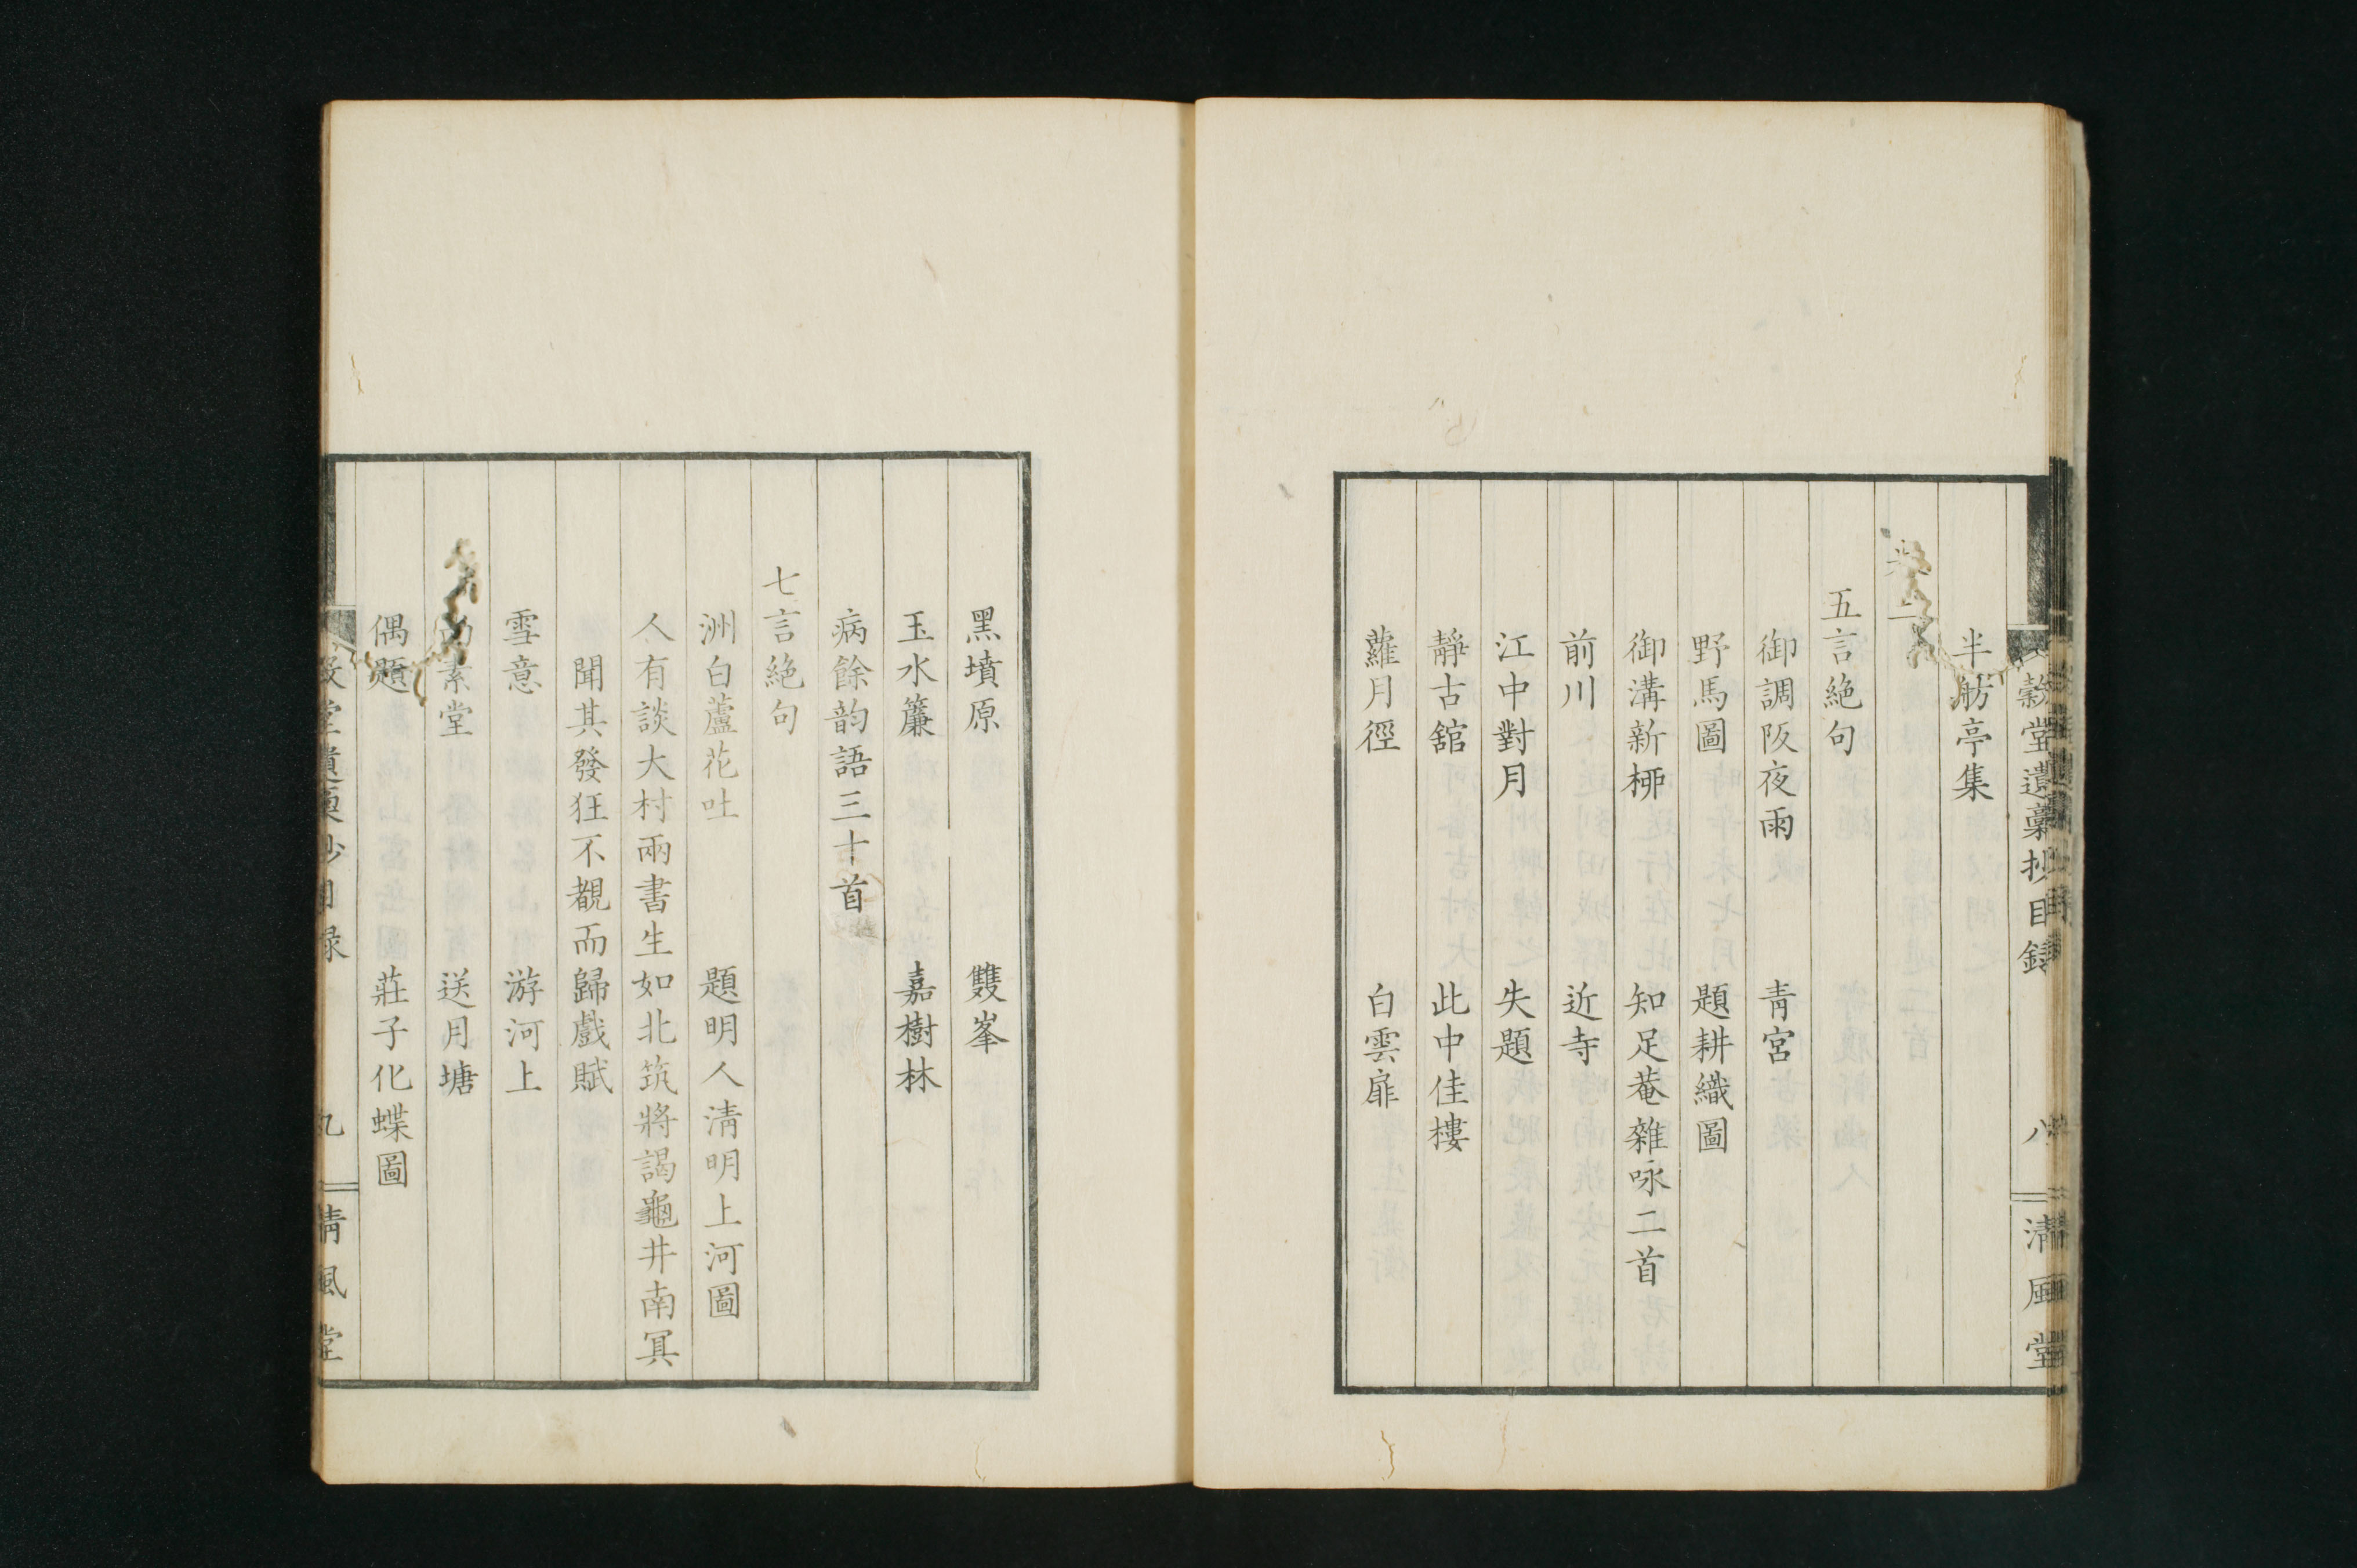 穀堂遺稾抄目録 八 淸風堂
半舫亭集
卷二
五言絶句
御調阪夜雨 靑宮
野馬圖 題耕織圖
御溝新栁 知足菴雜咏二首
前川 近寺
江中對月 失題
靜古舘 此中佳樓
蘿月徑 白雲扉
黑墳原 雙峯
玉水簾 嘉樹林
病餘韵語三十首
七言絶句
洲白蘆花吐 題明人淸明上河圖
人有談大村兩書生如北筑將謁龜井南冥
聞其發狂不覩而歸戲賦
雪意 游河上
素堂 送月塘
偶題 莊子化蝶圖
穀堂遺稾抄目録 九 淸風堂